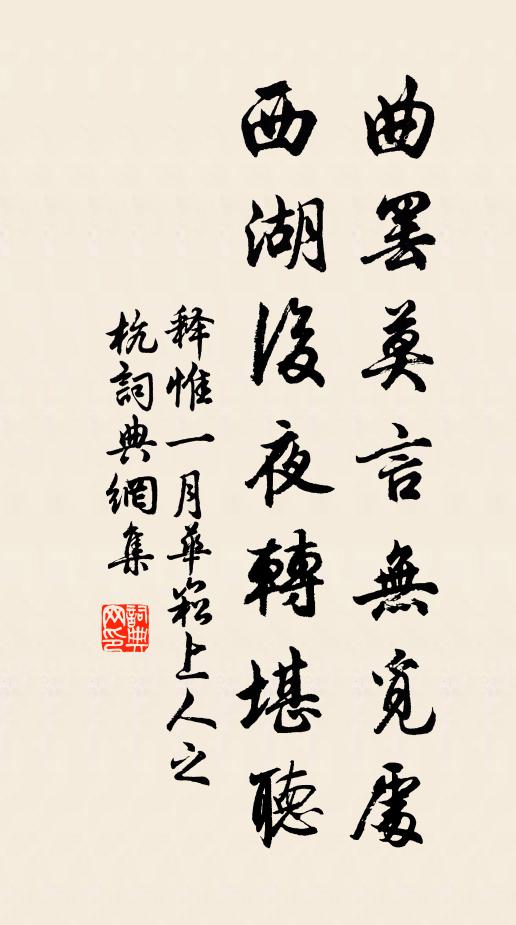 曲罷莫言無覓處
西湖後夜轉堪聽
释惟一月華崧上人之
杭詞典網集
詞典網印